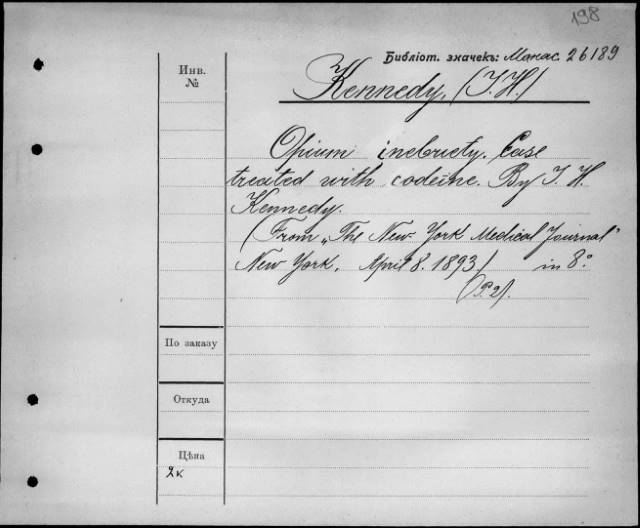 198
Библіот. значекъ: Манас. 26189
Инв.
№
Kennedy, (T. H.)
Opium inebriety. Case
treated with codeine. By T. H.
Kennedy.
(From „The New York Medical Journal"
New York. April 8. 1893) in 8°.
(P. 2).
По заказу
Откуда
Цѣна
2к